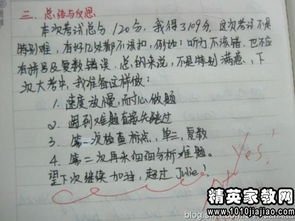 三. 总结与反思
本次考试总分120分,我得了109分,这次考试不是
特别难,有好几处都不该扣,例如:听力不该错,也不应
有拼写及复数错误。总的来说,不是特别满意,下
次大考中,我准备这样做:
1. 速度放慢,而细心做题
2. 遇到难题直接先跳过
3. 第一次检查标点,第二,复数
4. 第二次再来细细分析难题。
望下次继续加油,超过 Julie!
Yes!
精英家教网
www.1010jiajiao.com